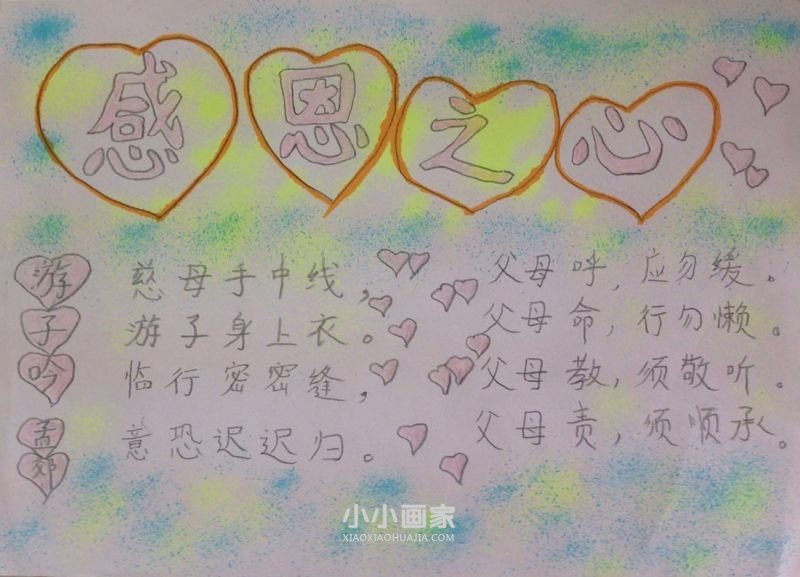 感恩之心
游子吟
孟郊
慈母手中线，
游子身上衣。
临行密密缝，
意恐迟迟归。
父母呼，应勿缓。
父母命，行勿懒。
父母教，须敬听。
父母责，须顺承。
小小画家
XIAOXIAOHUAJIA.COM